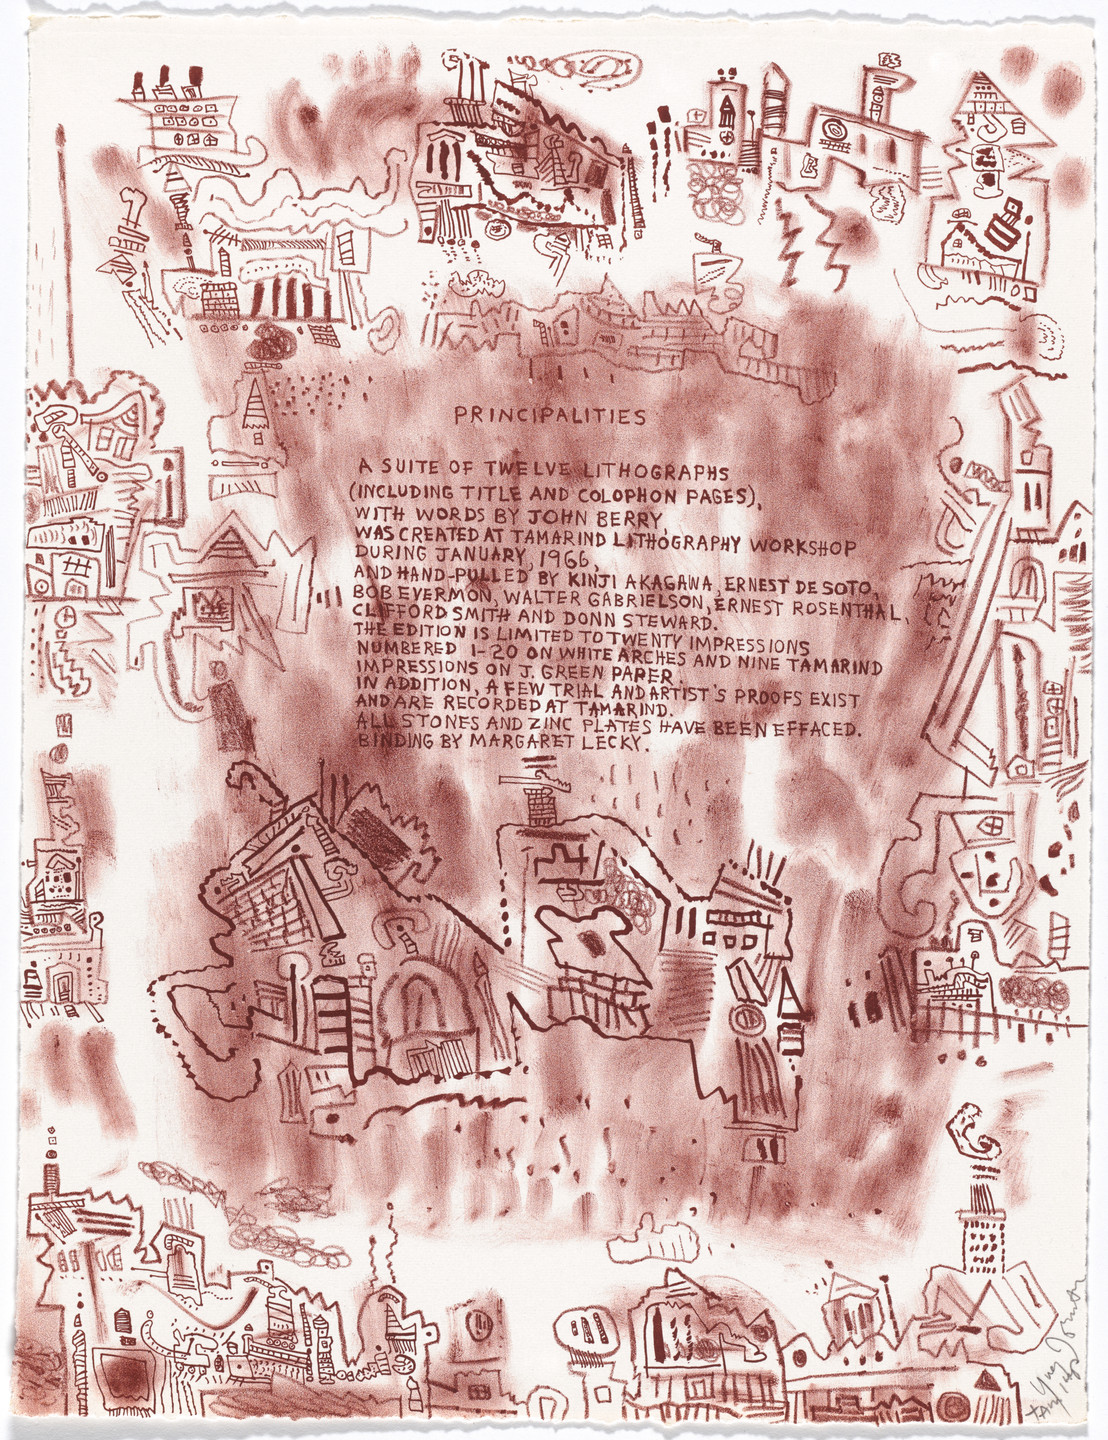 PRINCIPALITIES
A SUITE OF TWELVE LITHOGRAPHS
(INCLUDING TITLE AND COLOPHON PAGES),
WITH WORDS BY JOHN BERRY,
WAS CREATED AT TAMARIND LITHOGRAPHY WORKSHOP
DURING JANUARY, 1966,
AND HAND-PULLED BY KINJI AKAGAWA, ERNEST DE SOTO,
BOB EVERMON, WALTER GABRIELSON, ERNEST ROSENTHAL,
CLIFFORD SMITH AND DONN STEWARD.
THE EDITION IS LIMITED TO TWENTY IMPRESSIONS
NUMBERED 1-20 ON WHITE ARCHES AND NINE TAMARIND
IMPRESSIONS ON J. GREEN PAPER.
IN ADDITION, A FEW TRIAL AND ARTIST'S PROOFS EXIST
AND ARE RECORDED AT TAMARIND.
ALL STONES AND ZINC PLATES HAVE BEEN EFFACED.
BINDING BY MARGARET LECKY.